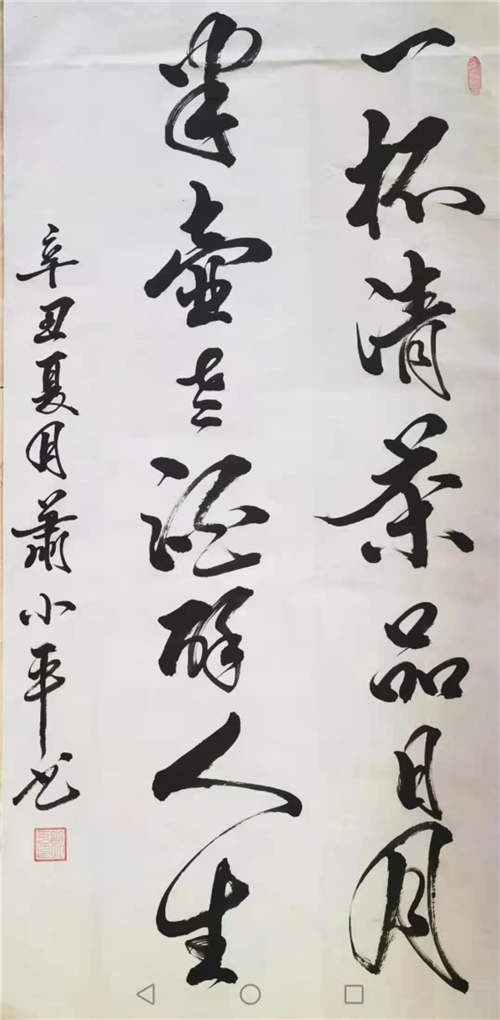 一杯清茶品日月
半壶老酒醉人生
辛丑夏月萧小平书